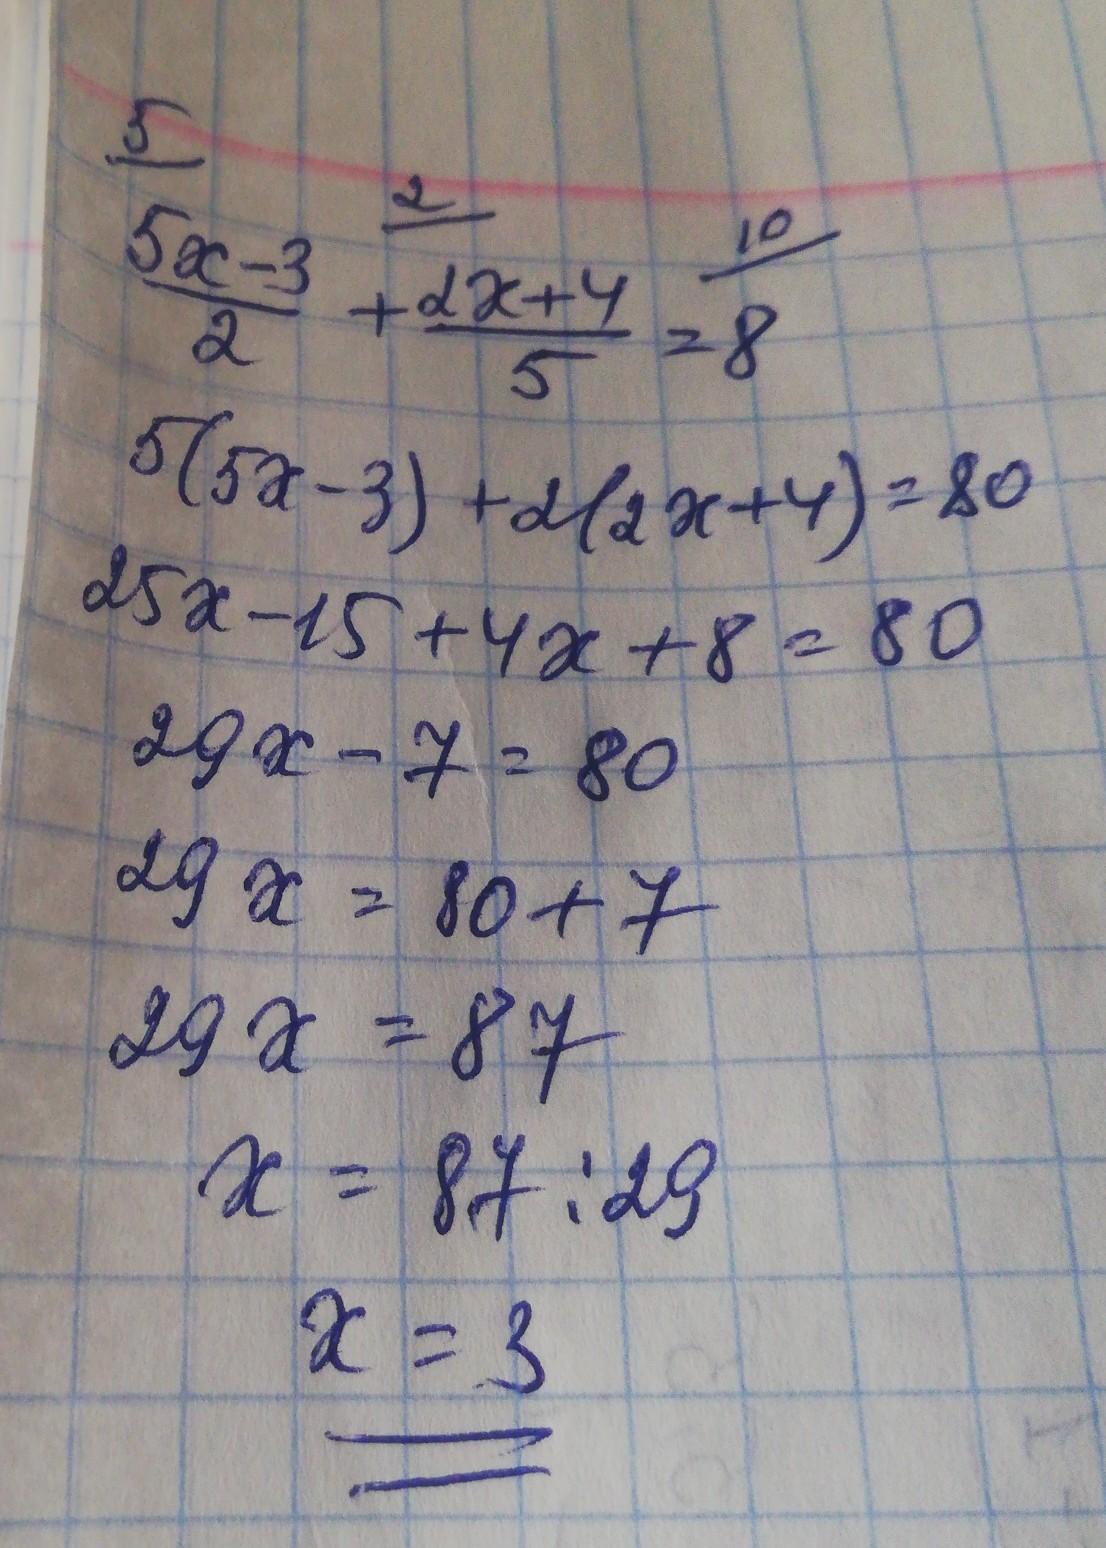 5 2 10
5x-3/2 + 2x+4/5 = 8
5(5x-3) + 2(2x+4) = 80
25x-15+4x+8=80
29x-7=80
29x=80+7
29x=87
x=87:29
x=3